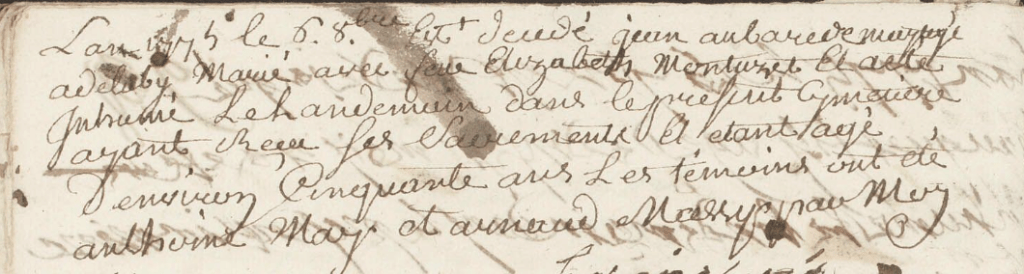 Lan 1775 le 6. 8.bre Est decedé jean aubare de
adeleby Marié avec feue Elizabeth Montuzet Et a eté
Inhumé Lehandemain dans le present Cymetiere
ayant Reçu ses Sacrements Et etant agé
D'environ Cinquante ans Les témoins ont eté
anthoine May et arnaud Massy par Moy